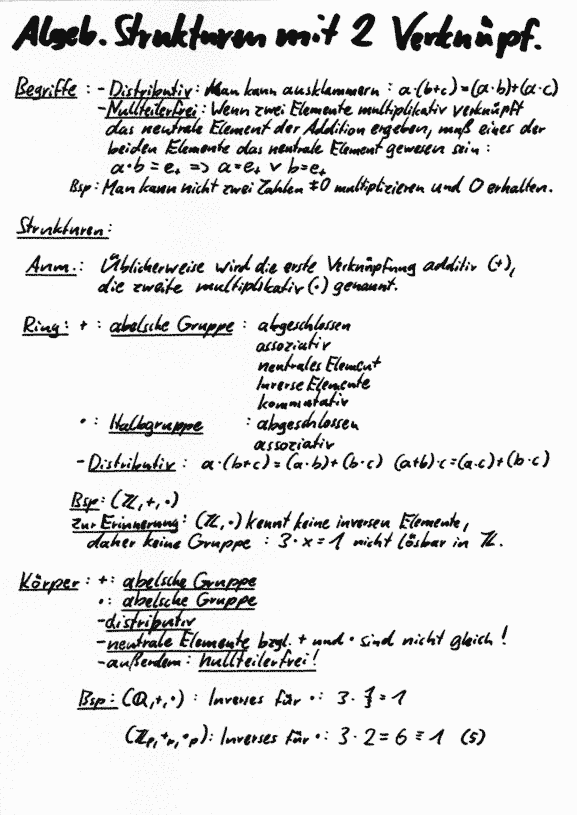 Algeb. Strukturen mit 2 Verknüpf.
Begriffe: - Distributiv: Man kann ausklammern: a·(b+c)=(a·b)+(a·c)
- Nullteilerfrei: Wenn zwei Elemente multiplikativ verknüpft
das neutrale Element der Addition ergeben, muß eines der
beiden Elemente das neutrale Element gewesen sein:
a·b = e₊ => a=e₊ ∨ b=e₊
Bsp: Man kann nicht zwei Zahlen ≠0 multiplizieren und 0 erhalten.
Strukturen:
Anm.: Üblicherweise wird die erste Verknüpfung additiv (+),
die zweite multiplikativ (·) genannt.
Ring: + : abelsche Gruppe : abgeschlossen
assoziativ
neutrales Element
Inverse Elemente
kommutativ
· : Halbgruppe : abgeschlossen
assoziativ
- Distributiv: a·(b+c)=(a·b)+(b·c) (a+b)·c=(a·c)+(b·c)
Bsp: (ℤ,+,·)
zur Erinnerung: (ℤ,·) kennt keine inversen Elemente,
daher keine Gruppe : 3·x=1 nicht lösbar in ℤ.
Körper: +: abelsche Gruppe
·: abelsche Gruppe
- distributiv
- neutrale Elemente bzgl. + und · sind nicht gleich!
- außerdem: nullteilerfrei!
Bsp: (ℚ,+,·) : Inverses für ·: 3·⅓=1
(ℤₚ,+ₚ,·ₚ): Inverses für ·: 3·2=6≡1 (5)